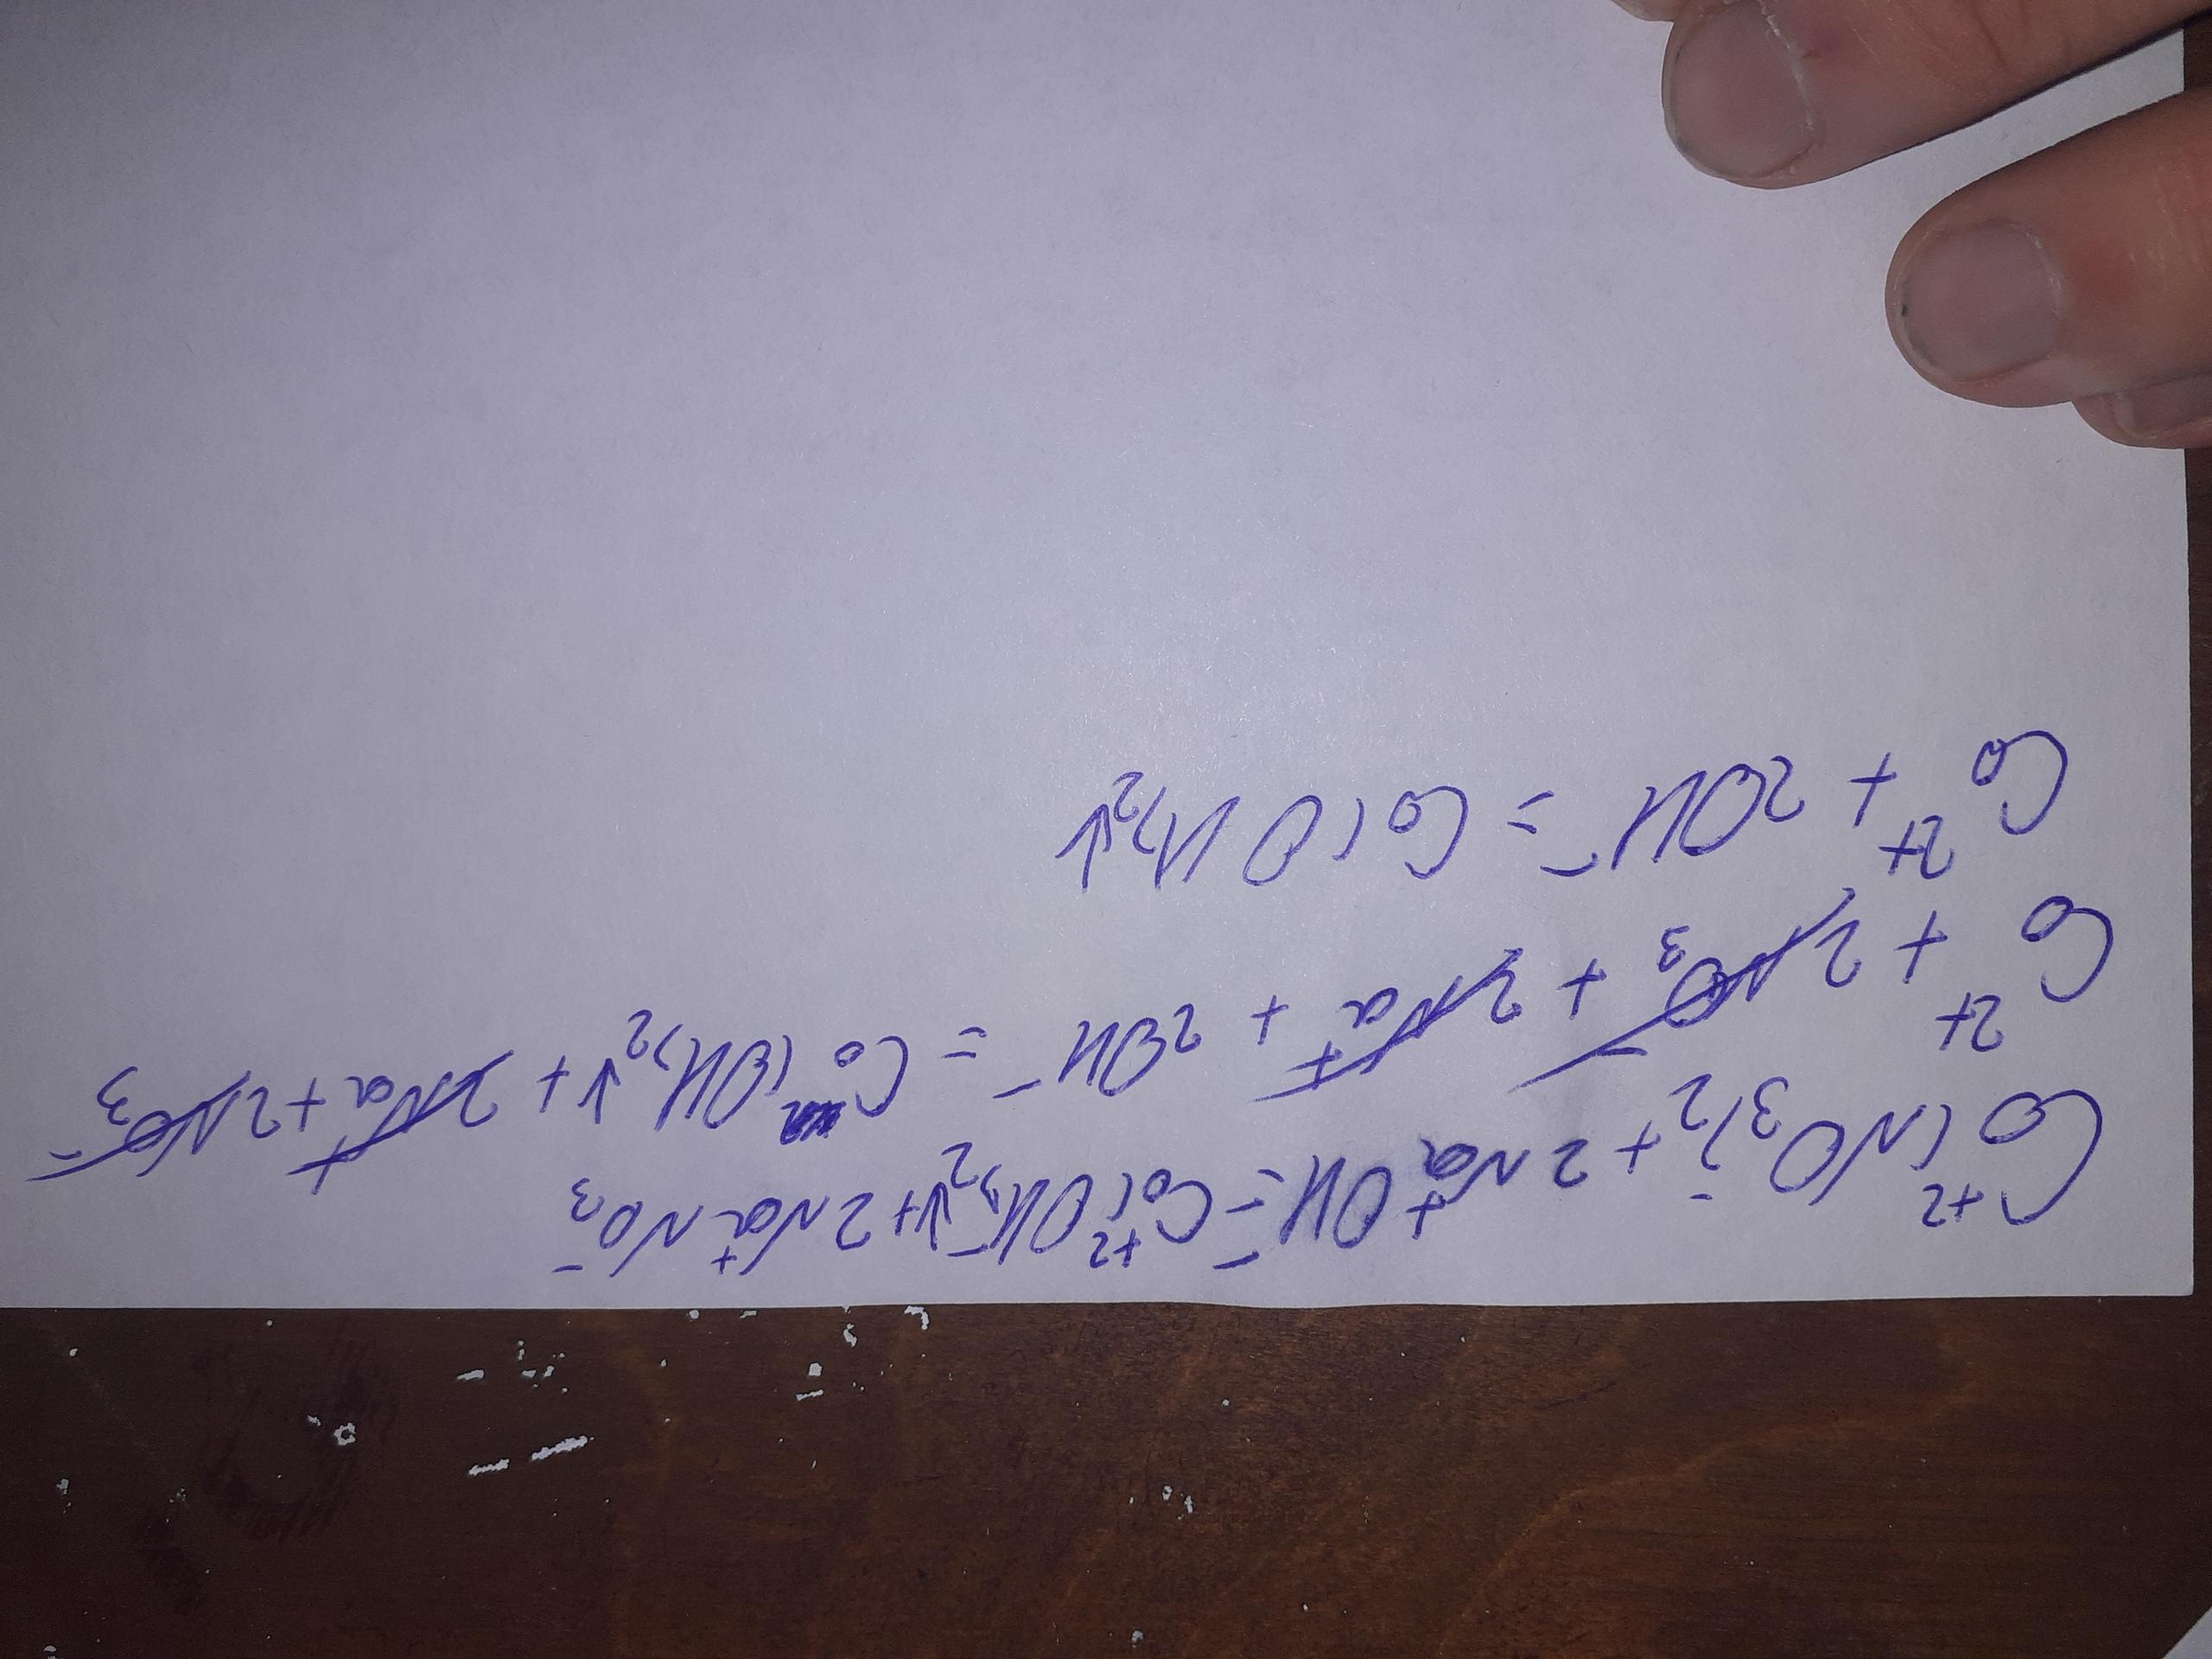 Co⁺²(NO₃⁻)₂ + 2Na⁺OH⁻ = Co⁺²(OH⁻)₂↓ + 2Na⁺NO₃⁻
Co²⁺ + 2NO₃⁻ + 2Na⁺ + 2OH⁻ = Co(OH)₂↓ + 2Na⁺ + 2NO₃⁻
Co²⁺ + 2OH⁻ = Co(OH)₂↓